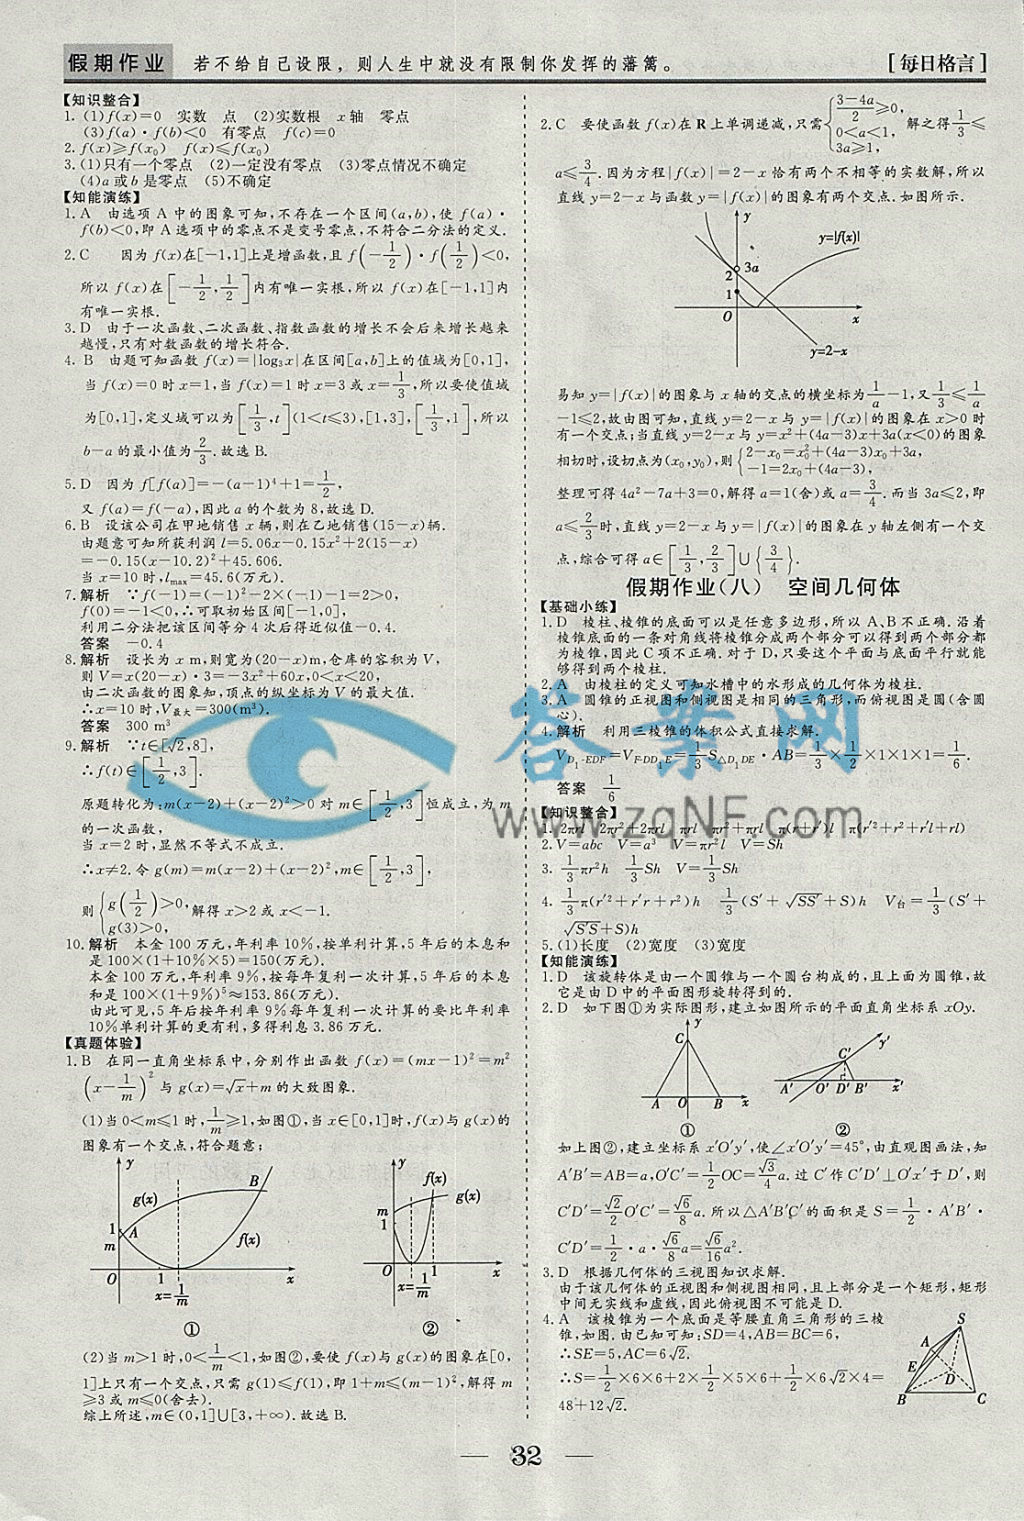 假期作业 若不给自己设限，则人生中就没有限制你发挥的藩篱。 [每日格言]
【知识整合】
1. (1)f(x)=0 实数 点 (2)实数根 x轴 零点
(3)f(a)·f(b)<0 有零点 f(c)=0
2. f(x)≥f(x₀) f(x)≤f(x₀)
3. (1)只有一个零点 (2)一定没有零点 (3)零点情况不确定
(4)a或b是零点 (5)不确定
【知能演练】
1. A 由选项A中的图象可知,不存在一个区间(a,b),使f(a)·
f(b)<0,即A选项中的零点不是变号零点,不符合二分法的定义.
2. C 因为f(x)在[-1,1]上是增函数,且f(-1/2)·f(1/2)<0,
所以f(x)在[-1/2,1/2]内有唯一实根,所以f(x)在[-1,1]内
有唯一实根.
3. D 由于一次函数、二次函数、指数函数的增长不会后来增长越来
越慢,只有对数函数的增长符合.
4. B 由题可知函数f(x)=|log₃x|在区间[a,b]上的值域为[0,1],
当f(x)=0时x=1,当f(x)=1时x=3或x=1/3,所以要使值域
为[0,1],定义域可以为[1/3,t](1<t≤3),[1,3],[1/3,1],所以
b-a的最小值为2/3.故选B.
5. D 因为f[f(a)]=-(a-1)⁴+1=1/2,
又f(a)=f(-a),因此a的个数为8,故选D.
6. B 设该公司在甲地销售x辆,则在乙地销售(15-x)辆.
由题意可知所获利润l=5.06x-0.15x²+2(15-x)
=-0.15(x-10.2)²+45.606.
当x=10时,lmax=45.6(万元).
7. 解析 ∵f(-1)=(-1)²-2×(-1)-1=2>0,
f(0)=-1<0,∴可取初始区间[-1,0],
利用二分法把该区间等分4次后得近似值-0.4.
答案 -0.4
8. 解析 设长为x m,则宽为(20-x)m,仓库的容积为V,
则V=x(20-x)·3=-3x²+60x,0<x<20,
由二次函数的图象知,顶点的纵坐标为V的最大值.
∴x=10时,V最大=300(m³).
答案 300 m³
9. 解析 ∵t∈[√2,8],
∴f(t)∈[1/2,3].
原题转化为:m(x-2)+(x-2)²>0对m∈[1/2,3]恒成立,为m
的一次函数,
当x=2时,显然不等式不成立.
∴x≠2.令g(m)=m(x-2)+(x-2)²,m∈[1/2,3],
则{g(1/2)>0, g(3)>0, 解得x>2或x<-1.
10. 解析 本金100万元,年利率10%,按单利计算,5年后的本息和
是100×(1+10%×5)=150(万元).
本金100万元,年利率9%,按每年复利一次计算,5年后的本息
和是100×(1+9%)⁵≈153.86(万元).
由此可见,5年后按年利率9%每年复利一次计算的要比年利率
10%单利计算的更有利,多得利息3.86万元.
【真题体验】
1. B 在同一直角坐标系中,分别作出函数f(x)=(mx-1)²=m²
(x-1/m)²与g(x)=√x+m的大致图象.
(1)当0<m≤1时,1/m≥1,如图①,当x∈[0,1]时,f(x)与g(x)的
图象有一个交点,符合题意;
y B g(x) 1 A m f(x) O 1 1/m x x=1/m
①
y f(x) g(x) m 1 O 1 x x=1/m
②
(2)当m>1时,0<1/m<1,如图②,要使f(x)与g(x)的图象在[0,
1]上只有一个交点,只需g(1)≤f(1),即1+m≤(m-1)²,解得m
≥3或m≤0(舍去).
综上所述,m∈(0,1]∪[3,+∞).故选B.
2. C 要使函数f(x)在R上单调递减,只需{(3-4a)/2≥0, 0<a<1, 3a≥1, 解之得1/3≤
a≤3/4.因为方程|f(x)|=2-x恰有两个不相等的实数解,所以
直线y=2-x与函数y=|f(x)|的图象有两个交点.如图所示.
y y=|f(x)| 3a 2 1 O x y=2-x
易知y=|f(x)|的图象与x轴的交点的横坐标为1/a-1,又1/3≤1/a
-1≤2,故由图可知,直线y=2-x与y=|f(x)|的图象在x>0时
有一个交点;当直线y=2-x与y=x²+(4a-3)x+3a(x<0)的图象
相切时,设切点为(x₀,y₀),则{2-x₀=x₀²+(4a-3)x₀+3a, -1=2x₀+(4a-3),
整理可得4a²-7a+3=0,解得a=1(舍)或a=3/4.而当3a≤2,即
a≤2/3时,直线y=2-x与y=|f(x)|的图象在y轴左侧有一个交
点,综合可得a∈[1/3,2/3]∪{3/4}.
假期作业(八) 空间几何体
【基础小练】
1. D 棱柱、棱锥的底面可以是任意多边形,所以A、B不正确.沿着
棱锥底面的一条对角线将棱锥分成两个部分可以得到两个部分都
为棱锥,因此C项不正确.对于D,只要这个平面与底面平行就能
够得到两个棱柱.
2. A 由棱柱的定义可知水槽中的水形成的几何体为棱柱.
3. A 圆锥的正视图和侧视图是相同的三角形,而俯视图是圆(含圆
心).
4. 解析 利用三棱锥的体积公式直接求解.
V D₁-EDF=V F-DD₁E=1/3 S△D₁DE·AB=1/3×1/2×1×1×1=1/6.
答案 1/6
【知识整合】
1. 2πrl 2πr²+2πrl πrl πr²+πrl π(r+r′)l π(r′²+r²+r′l+rl)
2. V=abc V=a³ V=πr²l V=Sh
3. 1/3πr²h 1/3Sh V=1/3Sh
4. 1/3π(r′²+r′r+r²)h 1/3(S′+√SS′+S)h V台=1/3(S′+
√S′S+S)h
5. (1)长度 (2)宽度 (3)宽度
【知能演练】
1. D 该旋转体是由一个圆锥与一个圆台构成的,且上面为圆锥,故
它是由D中的平面图形旋转得到的.
2. D 如下图①为实际图形,建立如图所示的平面直角坐标系xOy.
y C A O B x
①
y′ C′ A′ O′ D′ B′ x′
②
如上图②,建立坐标系x′O′y′,使∠x′O′y′=45°,由直观图画法,知
A′B′=AB=a,O′C′=1/2OC=√3/4a.过C′作C′D′⊥O′x′于D′,则
C′D′=√2/2O′C′=√6/8a.所以△A′B′C′的面积是S=1/2·A′B′·
C′D′=1/2·a·√6/8a=√6/16a².
3. D 根据几何体的三视图知识求解.
由于该几何体的正视图和侧视图相同,且上部分是一个矩形,矩形
中间无实线和虚线,因此俯视图不可能是D.
4. A 该棱锥为一个底面是等腰直角三角形的三棱
锥,如图.由已知可知:SD=4,AB=BC=6,
∴SE=5,AC=6√2.
∴S=1/2×6×6+2×1/2×5×6+1/2×6√2×4=
48+12√2.
S A E D B C
32
答案网
www.zqNF.com